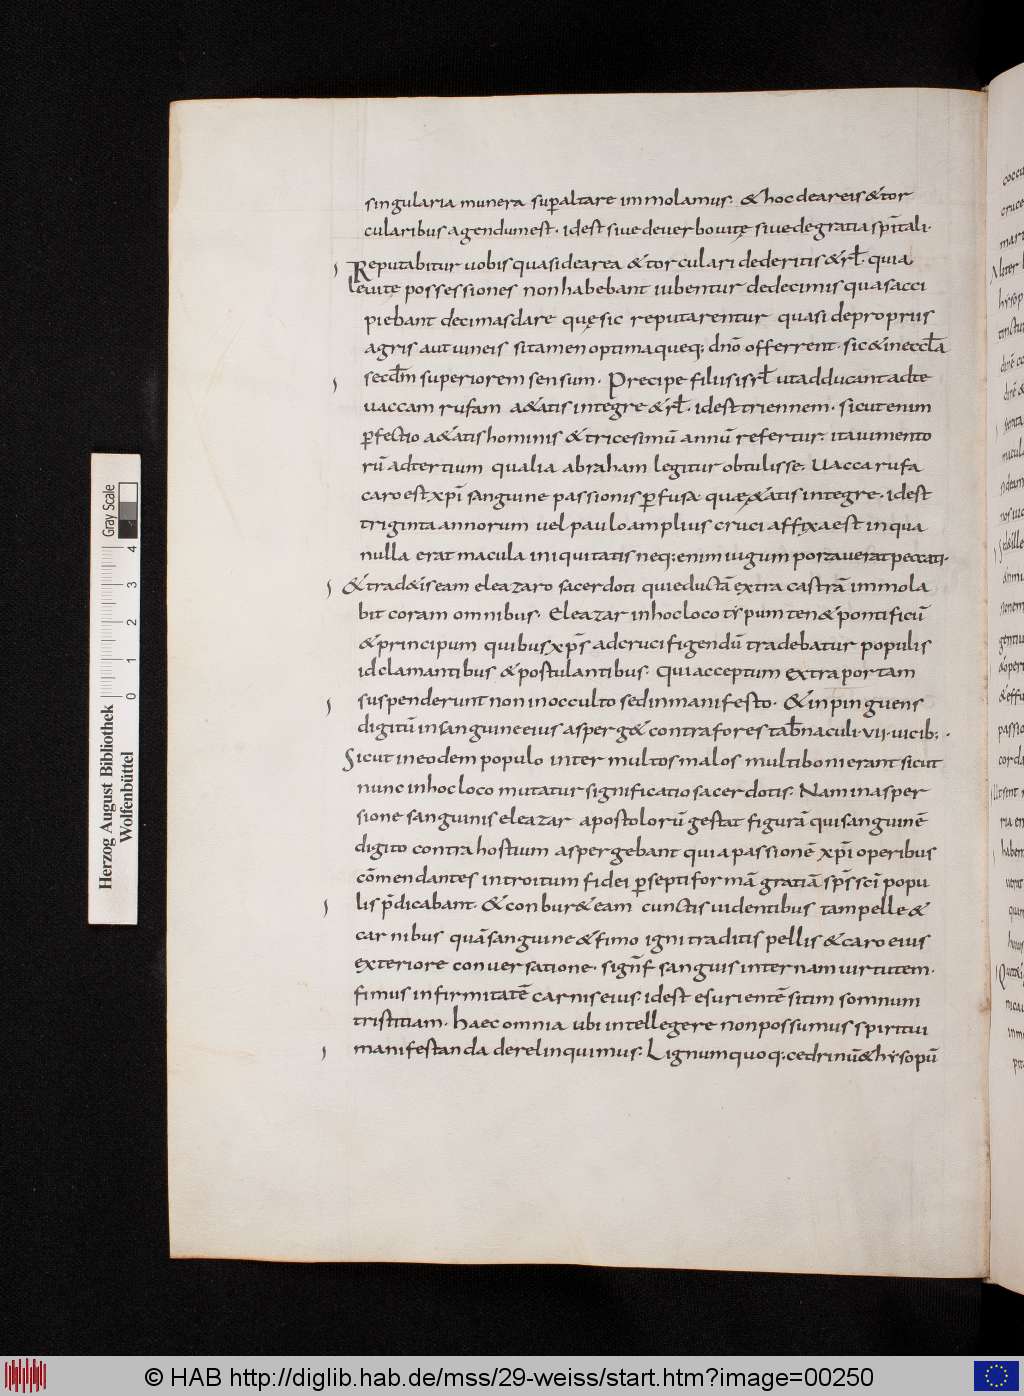 singularia munera sup̄ altare immolamus. & hoc de areis & tor
cularibus agendum est. id est siue de uerbo uitę siue de gratia sp̄itali.
Reputabitur uobis quasi de area & torculari dederitis & rł. quia
leuitę possessiones non habebant iubentur de decimis quas acci
piebant decimas dare quę sic reputarentur quasi de propriis
agris aut uineis si tamen optima queq; dn̄o offerrent. sic & in eccła
secd̄m superiorem sensum. Precipe filiis isrł ut adducant ad te
uaccam rufam a&atis integre & rł. id est triennem. sicut enim
ꝑfectio a&atis hominis & tricesimū annū refertur. ita iumento
rū ad tertium qualia abraham legitur obtulisse. Uacca rufa
caro est xp̄i sanguine passionis ꝑfusa. quæ a&atis integre. id est
triginta annorum uel paulo amplius cruci affixa est in qua
nulla erat macula iniquitatis neq; enim iugum portauerat peccati.
& trad&is eam eleazaro sacerdoti qui eductā extra castrā immola
bit coram omnibus. Eleazar in hoc loco typum ten& pontificū
& principum quibus xp̄s ad crucifigendū tradebatur populis
id clamantibus & postulantibus. Qui acceptum extra portam
suspenderunt non in occulto sed in manifesto. & inpinguens
digitū in sanguine eius asperg& contra fores tab̄naculi. VII. uicib;.
Sicut in eodem populo inter multos malos multi boni erant sicut
nunc in hoc loco mutatur significatio sacerdotis. Nam in asper
sione sanguinis eleazar apostolorū gestat figurā qui sanguinē
digito contra hostium aspergebant quia passionē xp̄i operibus
cōmendantes introitum fidei ꝑ septiformā gratiā sp̄s sc̄i popu
lis p̄dicabant. & conbur& eam cunctis uidentibus tam pelle &
carnibus quā sanguine & fimo igni traditis pellis & caro eius
exteriore conuersatione. sign̄f sanguis internam uirtutem.
fimus infirmitatē carnis eius. id est esurientē sitim somnum
tristitiam. haec omnia ubi intellegere non possumus spiritui
manifestanda derelinquimus. Lignum quoq; cedrinū & hysopū
Herzog August Bibliothek
Wolfenbüttel
0 1 2 3 4
Gray Scale
© HAB http://diglib.hab.de/mss/29-weiss/start.htm?image=00250